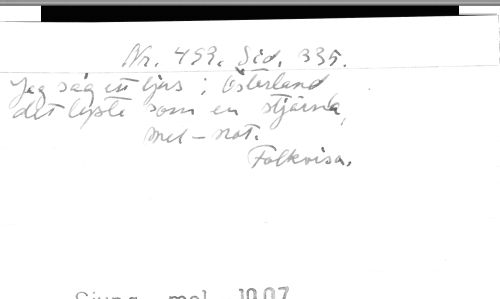 Nr. 453. Sid. 335.
Jag såg ett ljus i Österland
det lyste som en stjärna,
mel – not.
Folkvisa.
Sjung mel 1907